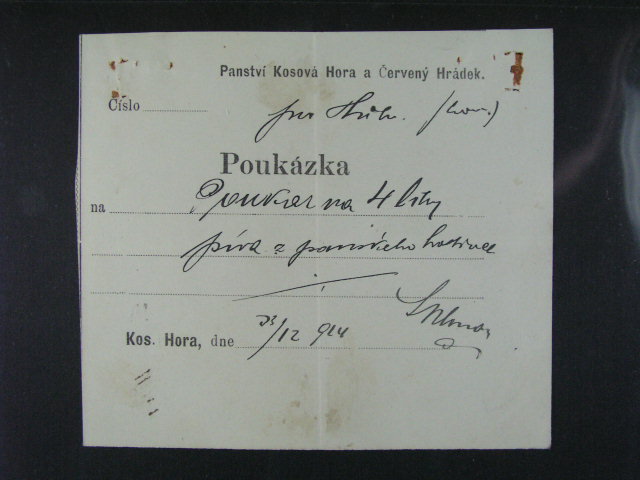 Panství Kosová Hora a Červený Hrádek.
Číslo
pro
Poukázka
na Poukaz na 4 litry
piva z panského hostince
Kos. Hora, dne 23/12 914